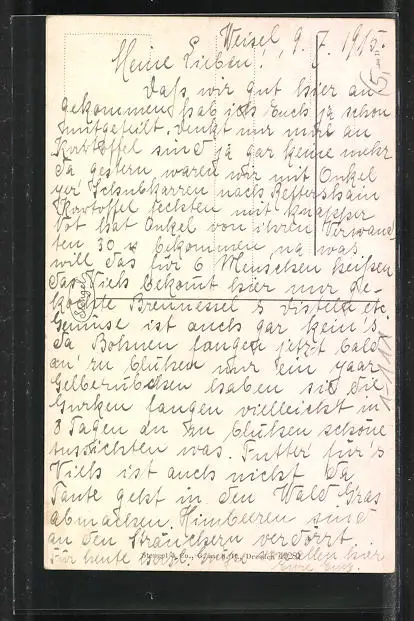 Weisel, 9. 7. 1915.
Meine Lieben!
Daß wir gut hier an
gekommen hab ich Euch ja schon
mitgeteilt, denkt nur mir an
Kartoffel sind ja gar keine mehr
da gestern waren wir mit Onkel
per Schubkarren nach Rettershain
Kartoffel fechten mit knapper
Not hat Onkel von ihren Verwand
ten 30 bekommen, na was
will das für 6 Menschen heißen
das Vieh bekomt hier nur Ge-
kochte Brennessel & Disteln etc.
Gemüse ist auch gar kein's
da Bohnen fangen jetzt bald
an zu blühen nur ein paar
Gelberübchen haben sie die
Gurken fangen vielleicht in
8 Tagen an zu blühen schöne
Aussichten was. Futter für's
Vieh ist auch nicht da
Tante geht in den Wald Gras
abmachen. Himbeeren sind
an den Sträuchern verdorrt.
Stengel & Co., Dresden
Für heute Grüße von allen hier
Eure